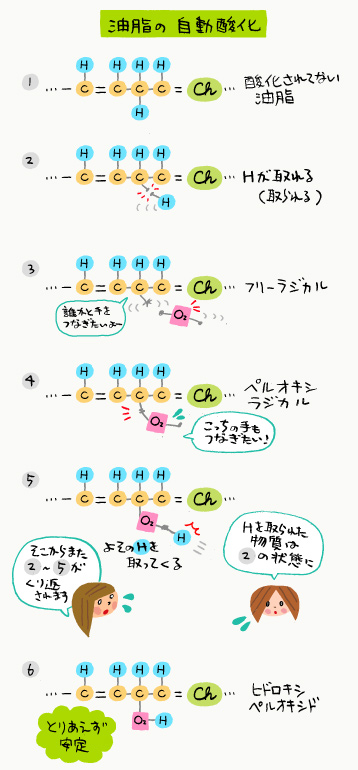 油脂の自動酸化
H H H H
1 … − C = C − C − C = Ch … 酸化されてない
油脂
H
H H H H
2 … − C = C − C − C = Ch … Hが取れる
(取られる)
H
H H H H
3 … − C = C − C − C = Ch … フリーラジカル
誰かと手を
つなぎたいよー
O₂
H H H H
4 … − C = C − C − C = Ch … ペルオキシ
ラジカル
O₂
こっちの手も
つなぎたい!
H H H H
5 … − C = C − C − C = Ch …
O₂ H
よそのHを
取ってくる
Hを取られた
物質は
2の状態に
そこからまた
2〜5が
くり返
されます
H H H H
6 … − C = C − C − C = Ch … ヒドロキシ
ペルオキシド
O₂ H
とりあえず
安定